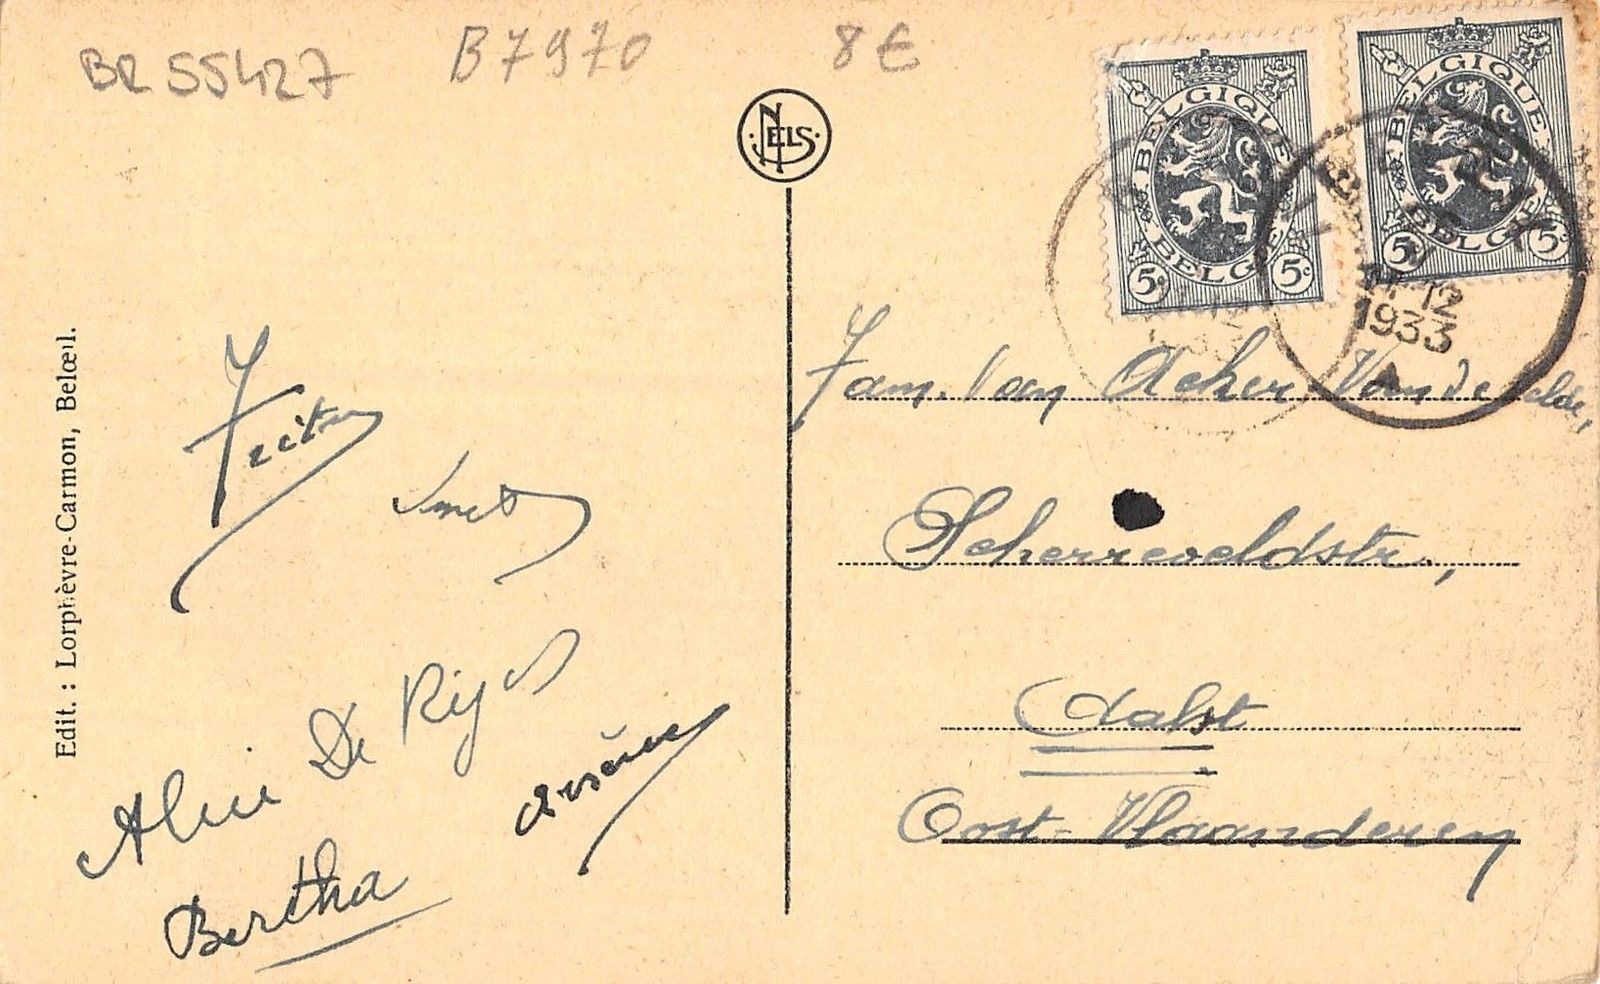 BR 55427
B7970
8€
NELS
BELGIQUE
BELGIE
5c
5c
BELGIQUE
BELGIE
5c
5c
12
1933
Edit. : Lorphèvre-Carmon, Belœil.
Frits
Smet
De Rijck
Arsène
Bertha
Fam. Van Acker-Van de Velde,
Scherreveldstr.,
Aalst
Oost-Vlaanderen